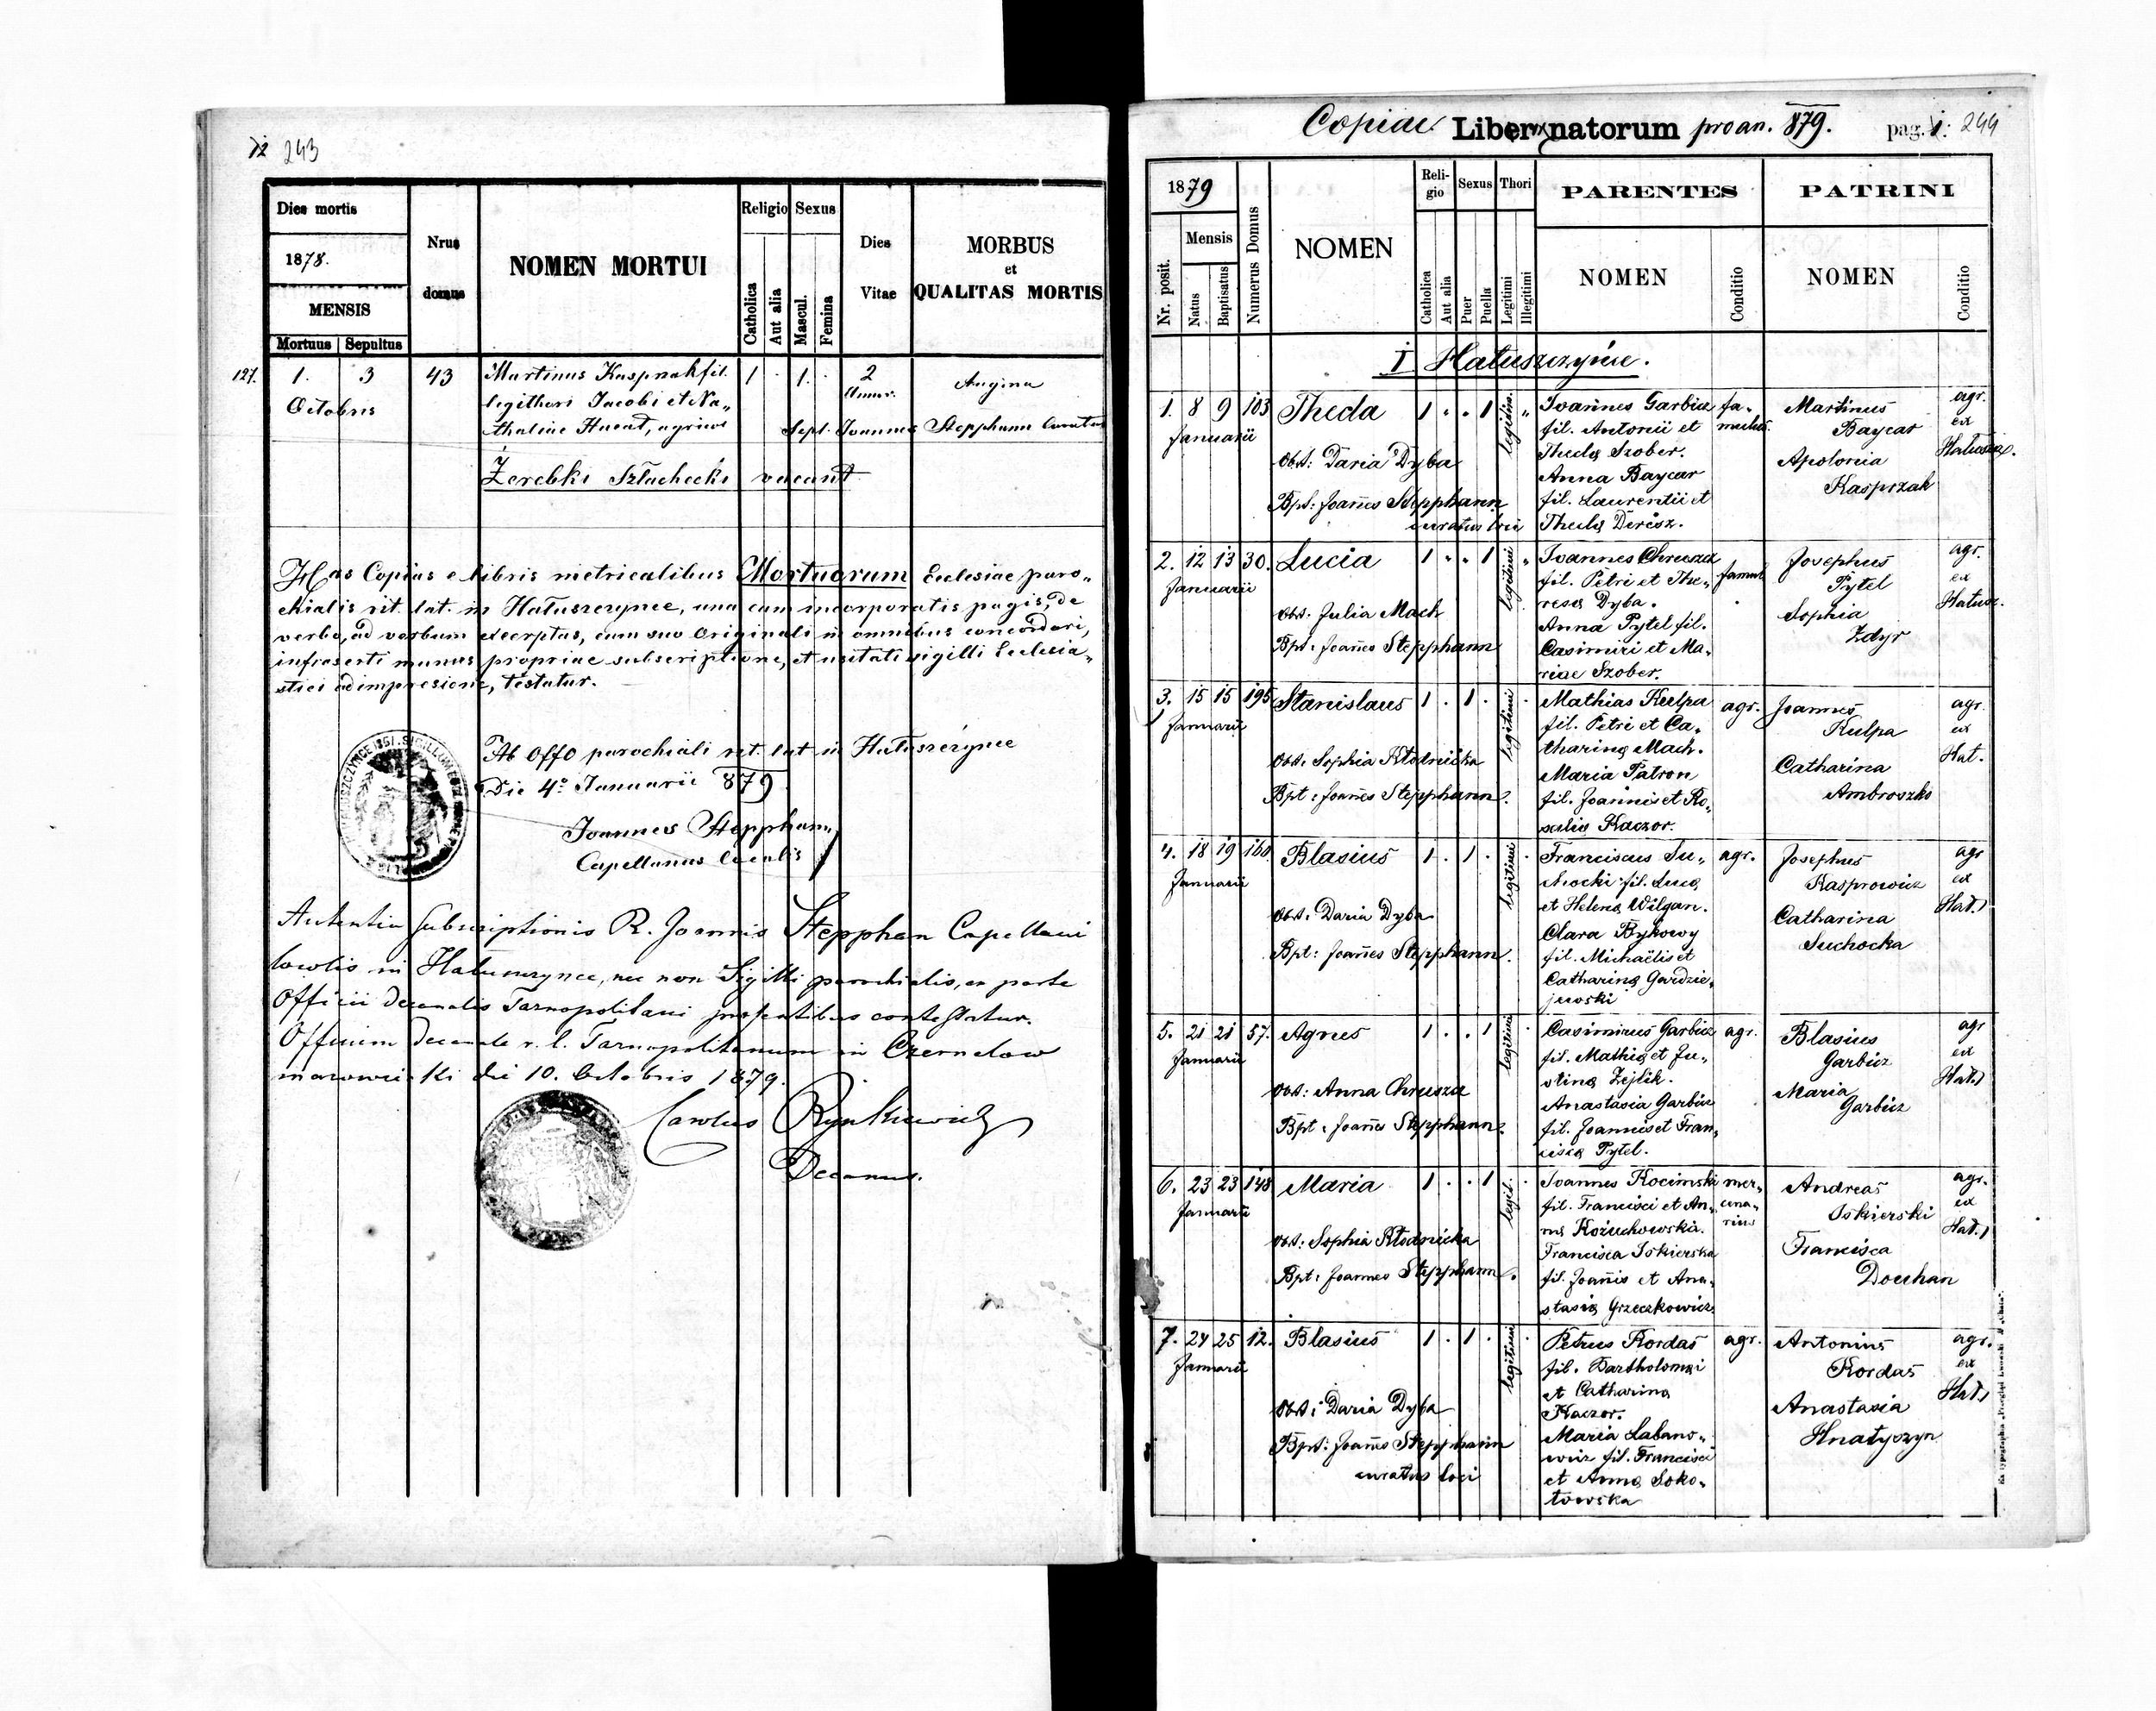 12 243
Dies mortis
1878.
MENSIS
Mortuus Sepultus
Nrus domus
NOMEN MORTUI
Religio
Catholica
Aut alia
Sexus
Mascul.
Femina
Dies Vitae
MORBUS
et
QUALITAS MORTIS
127. 1. 3 43 Martinus Kasprzak fil. 1 . 1. . 2 Angina
Octobris legithori Jacobi et Na„
thaliae agricol Sept. Joannes Stepphann Curatus
Żerebki Szlacheckі vacant
Has Copias e libris metricalibus Mortuorum Ecclesiae paro„
chialis rit. lat. in Hałuszczynce, una cum incorporatis pagis, de
verbo, ad verbum excerptas, cum suo Originali in omnibus concordari,
infraserti manus propriae subscriptione, et usitati sigilli Ecclesia„
stici adimpresione, testatur.
Ab Offo parochiali rit. lat in Hałuszczynce
Die 4ᵃ Januarii 879
Joannes Stepphann
Capellanus localis
Subscriptionis R. Joannis Stepphan Capellani
localis in Hałuszczynce, nec non Sigilli parochialis, ex parte
Officii Decanalis Tarnopoliani praesentibus contestatur.
Officium Decanale r. l. Tarnopolitanum in Czernelow
mazowiecki die 10. Octobris 1879.
Carolus Rynkiewicz
Decanus.
Copiae Liber natorum pro an. 879. pag. 1. 244
1879
Nr. posit.
Mensis
Natus
Baptisatus
Numerus Domus
NOMEN
Religio
Catholica
Aut alia
Sexus
Puer
Puella
Thori
Legitimi
Illegitimi
PARENTES
NOMEN
Conditio
PATRINI
NOMEN
Conditio
I Hałuszczyńce.
1. 8 9 103 Theda 1 . . 1 legitim. „ Joannes Garbicz fa„ Martinus agr.
Januarii fil. Antonii et mulus. Baycar ex
Obst: Daria Dyba Thecla Szober. Apolonia Hałuszcz.
Anna Baycar Kasprzak
Bpt: Joañes Stepphann fil. Laurentii et
curatus loci Thecla Deresz.
2. 12 13 30. Lucia 1 . . 1 legitimi „ Joannes Chruszcz famul. Josephus agr.
Januarii fil. Petri et The„ Pytel ex
Obst. Julia Mach resa Dyba. Sophia Hałusz.
Anna Pytel fil. Zdyr
Bpt: Joañes Stepphann Casimiri et Ma„
riae Szober.
3. 15 15 195 Stanislaus 1 . 1 . legitimi . Mathias Kulpa agr. Joannes agr.
Januarii fil. Petri et Ca„ Kulpa ex
Obst. Sophia Kłodnicka tharina Mach. Catharina Hał.
Maria Patron Ambroszko
Bpt: Joañes Stepphann. fil. Joannis et Ro„
salia Kaczor.
4. 18 19 160 Blasius 1 . 1 . legitimi . Franciscus Su„ agr. Josephus agr
Januarii chocki fil. Luca Kasprowicz ex
Obst: Daria Dyba et Helena Wilgan. Catharina Hał.
Clara Bykowy Suchocka
Bpt: Joañes Stepphann. fil. Michaëlis et
Catharina Gardzie„
jewski
5. 21 21 57. Agnes 1 . . 1 legitimi . Casimirus Garbicz agr. Blasius agr
Januarii fil. Mathia et Ju„ Garbicz ex
Obst: Anna Chruszcz stina Zejlik. Maria Hał.
Anastasia Garbicz Garbicz
Bpt: Joañes Stepphann. fil. Joannis et Fran„
cisca Pytel.
6. 23 23 148 Maria 1 . . 1 legit. . Joannes Kocimski mer„ Andreas agr.
Januarii fil. Francisci et An„ cena„ Iskierski ex
Obst: Sophia Kłodnicka na Kożuchowska. rius Francisca Hał.
Francisca Iskierska Douhan
Bpt: Joannes Stepphann. fil. Joañis et Ana„
stasia Grzeczkowicz
7. 24 25 12. Blasius 1 . 1 . legitimi . Petrus Kordas agr. Antonius agr.
Januarii fil. Bartholomaei Kordas ex
Obst: Daria Dyba et Catharina Anastasia Hał.
Kaczor. Hnatyszyn
Bpt: Joañes Stepphann Maria Labano„
curatus loci wicz fil. Francisci
et Anna Soko„
łowska